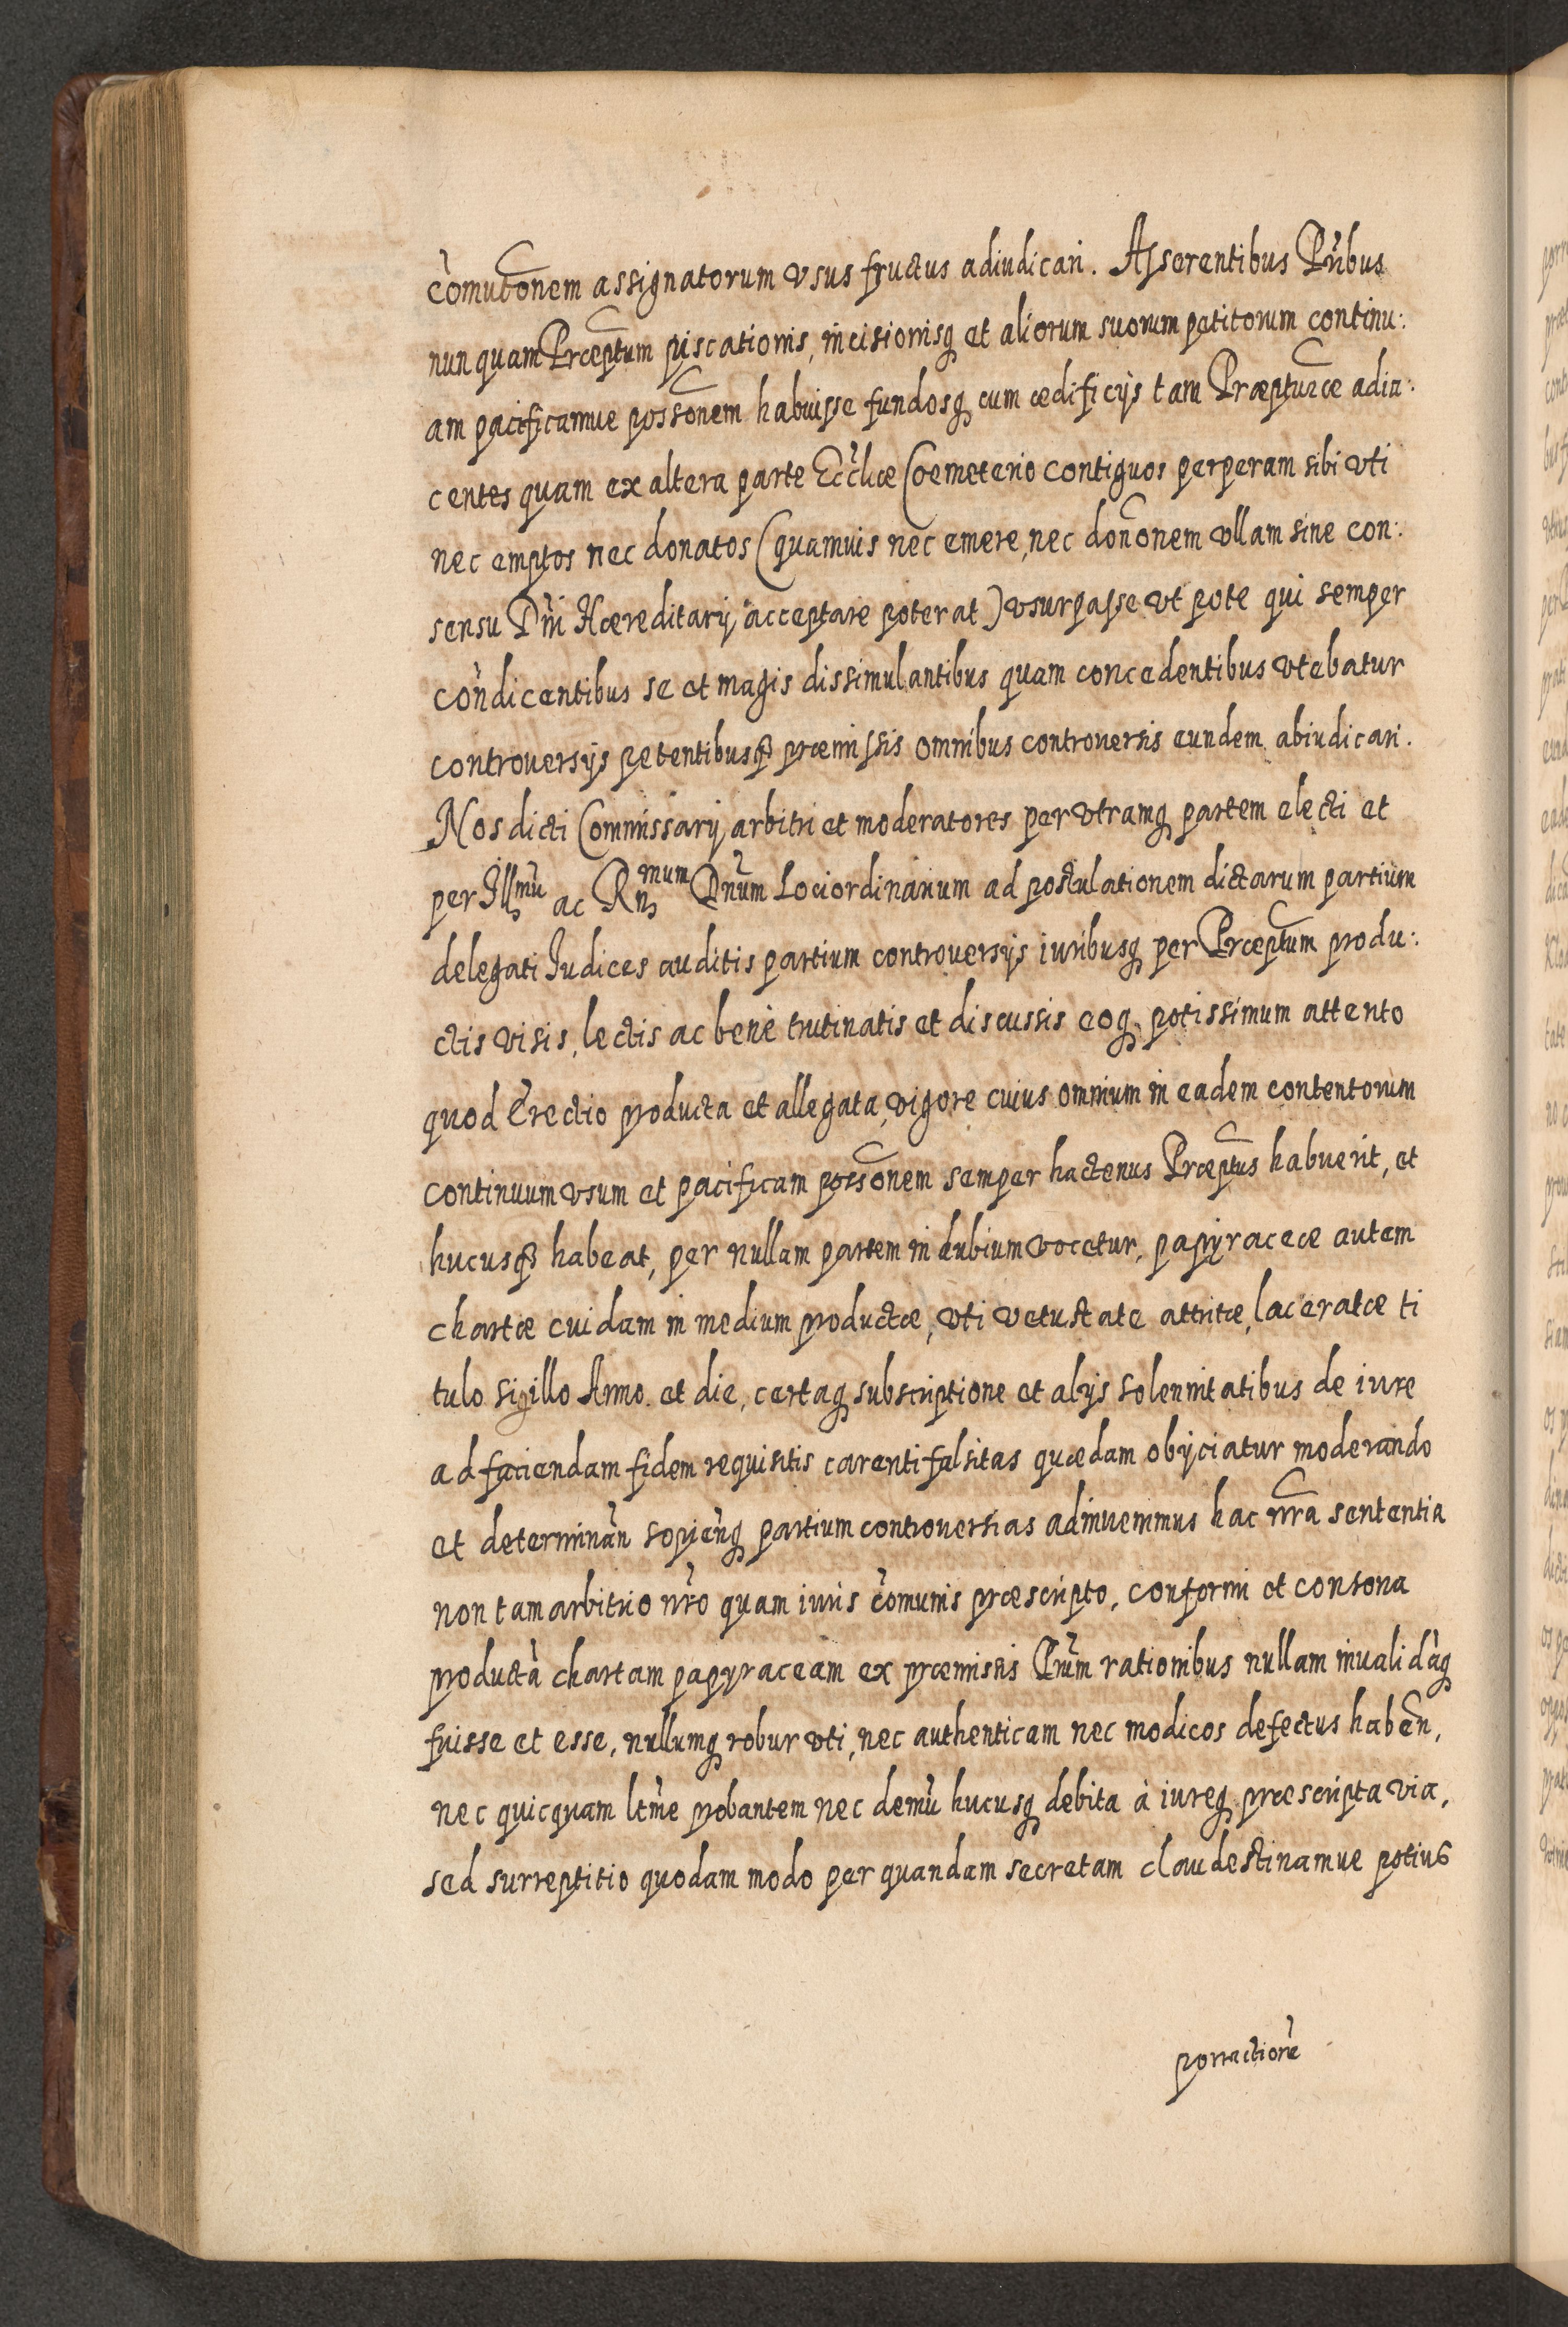 còmut͠onem assignatorum vsus fructus adiudicari. Asserentibus Pribus
nunquam Præptum piscationis, incisionisq et aliorum suorum petitorum continu:
am pacificamue possonem habuisse fundosq cum ædificijs tam Præpturæ adia:
centes quam ex altera parte Ecclicæ Coemeterio contiguos perperam sibi vti
nec emptos nec donatos (quamuis nec emere, nec dononem vllam sine con:
sensu Dni Hæreditarij acceptare poterat) vsurpasse vt pote qui semper
condicentibus se et magis dissimulantibus quam concedentibus vtebatur
controuersijs petentibusq præmissis omnibus controuersis eundem abiudicari.
Nos dicti Commissarij arbitri et moderatores per vtramq partem electi et
per Illmu ac Rnmum Dnum Lociordinarium ad postulationem dictarum partium
delegati Judices auditis partium controuersijs iuribusq per Præptum produ:
ctis visis, lectis ac benè trutinatis et discussis eoq potissimum attento
quod Erectio producta et allegata, vigore cuius omnium in eadem contentorum
continuum vsum et pacificam possonem semper hactenus Præptus habuerit, et
hucusq habeat, per nullam partem in dubium vocetur, papyraceæ autem
chartæ cuidam in medium productæ, vti vetustate attritæ, laceratæ ti
tulo sigillo Anno et die, certaq subscriptione et alijs solennitatibus de iure
ad faciendam fidem requisitis carenti falsitas quædam obijciatur moderando
et determinan sopienq partium controuersias adinuenimus hac nra sententia
non tam arbitrio nro quam iuris comunis præscripto, conformi et consona
productà chartam papyraceam ex præmissis Dnum rationibus nullam inualidàq
fuisse et esse, nullumq robur vti, nec authenticam nec modicos defectus haben,
nec quicquam ltme probantem nec demù hucusq debita à iureq præscripta via,
sed surreptitio quodam modo per quandam secretam clandestinamue potius
porrectionè